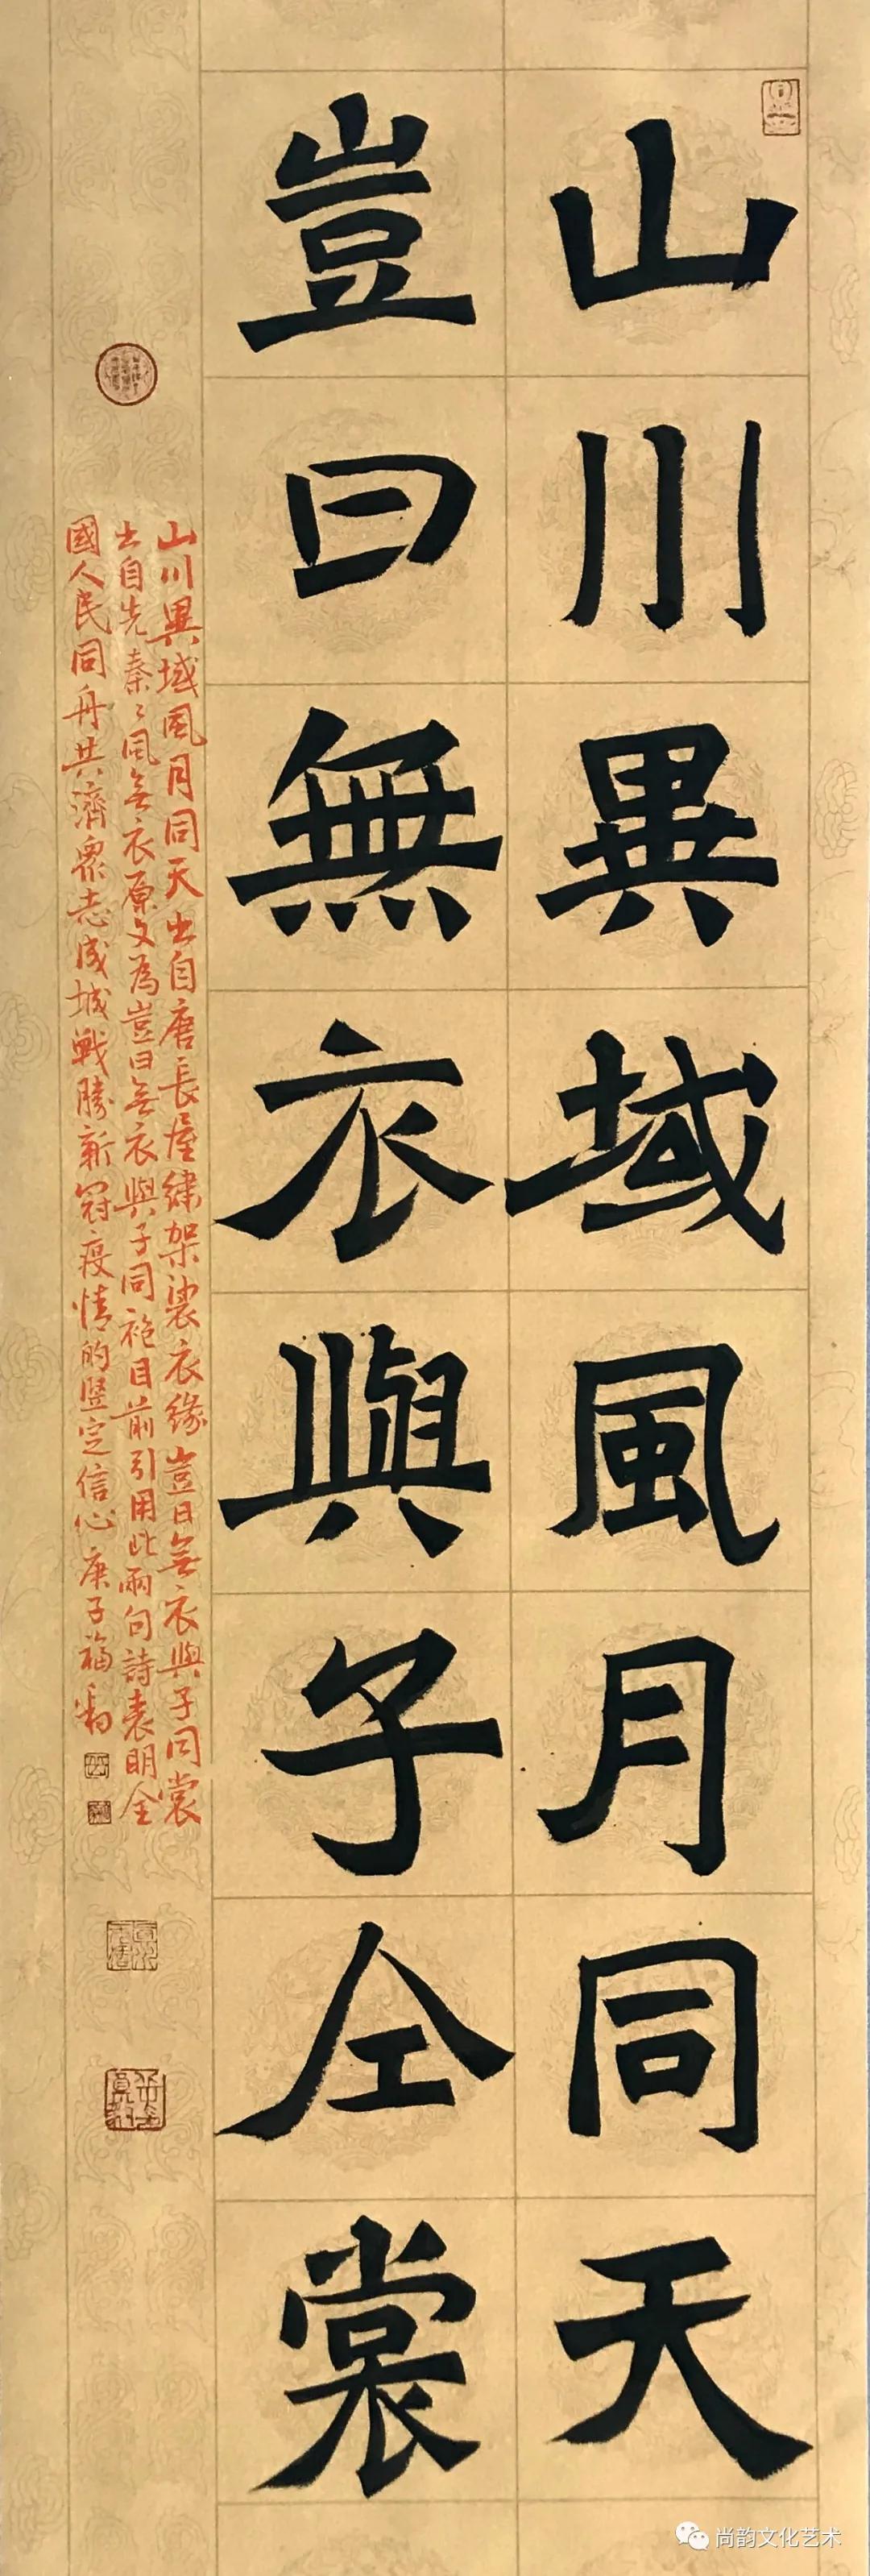 山川異域風月同天
豈曰無衣與子仝裳
山川異域風月同天出自唐長屋繡架裟衣緣豈曰無衣與子同裳
出自先秦秦風無衣原文為豈曰無衣與子同袍目前引用此兩句詩表明全
國人民同舟共濟眾志成城戰勝新冠疫情的堅定信心 庚子福
尚韵文化艺术